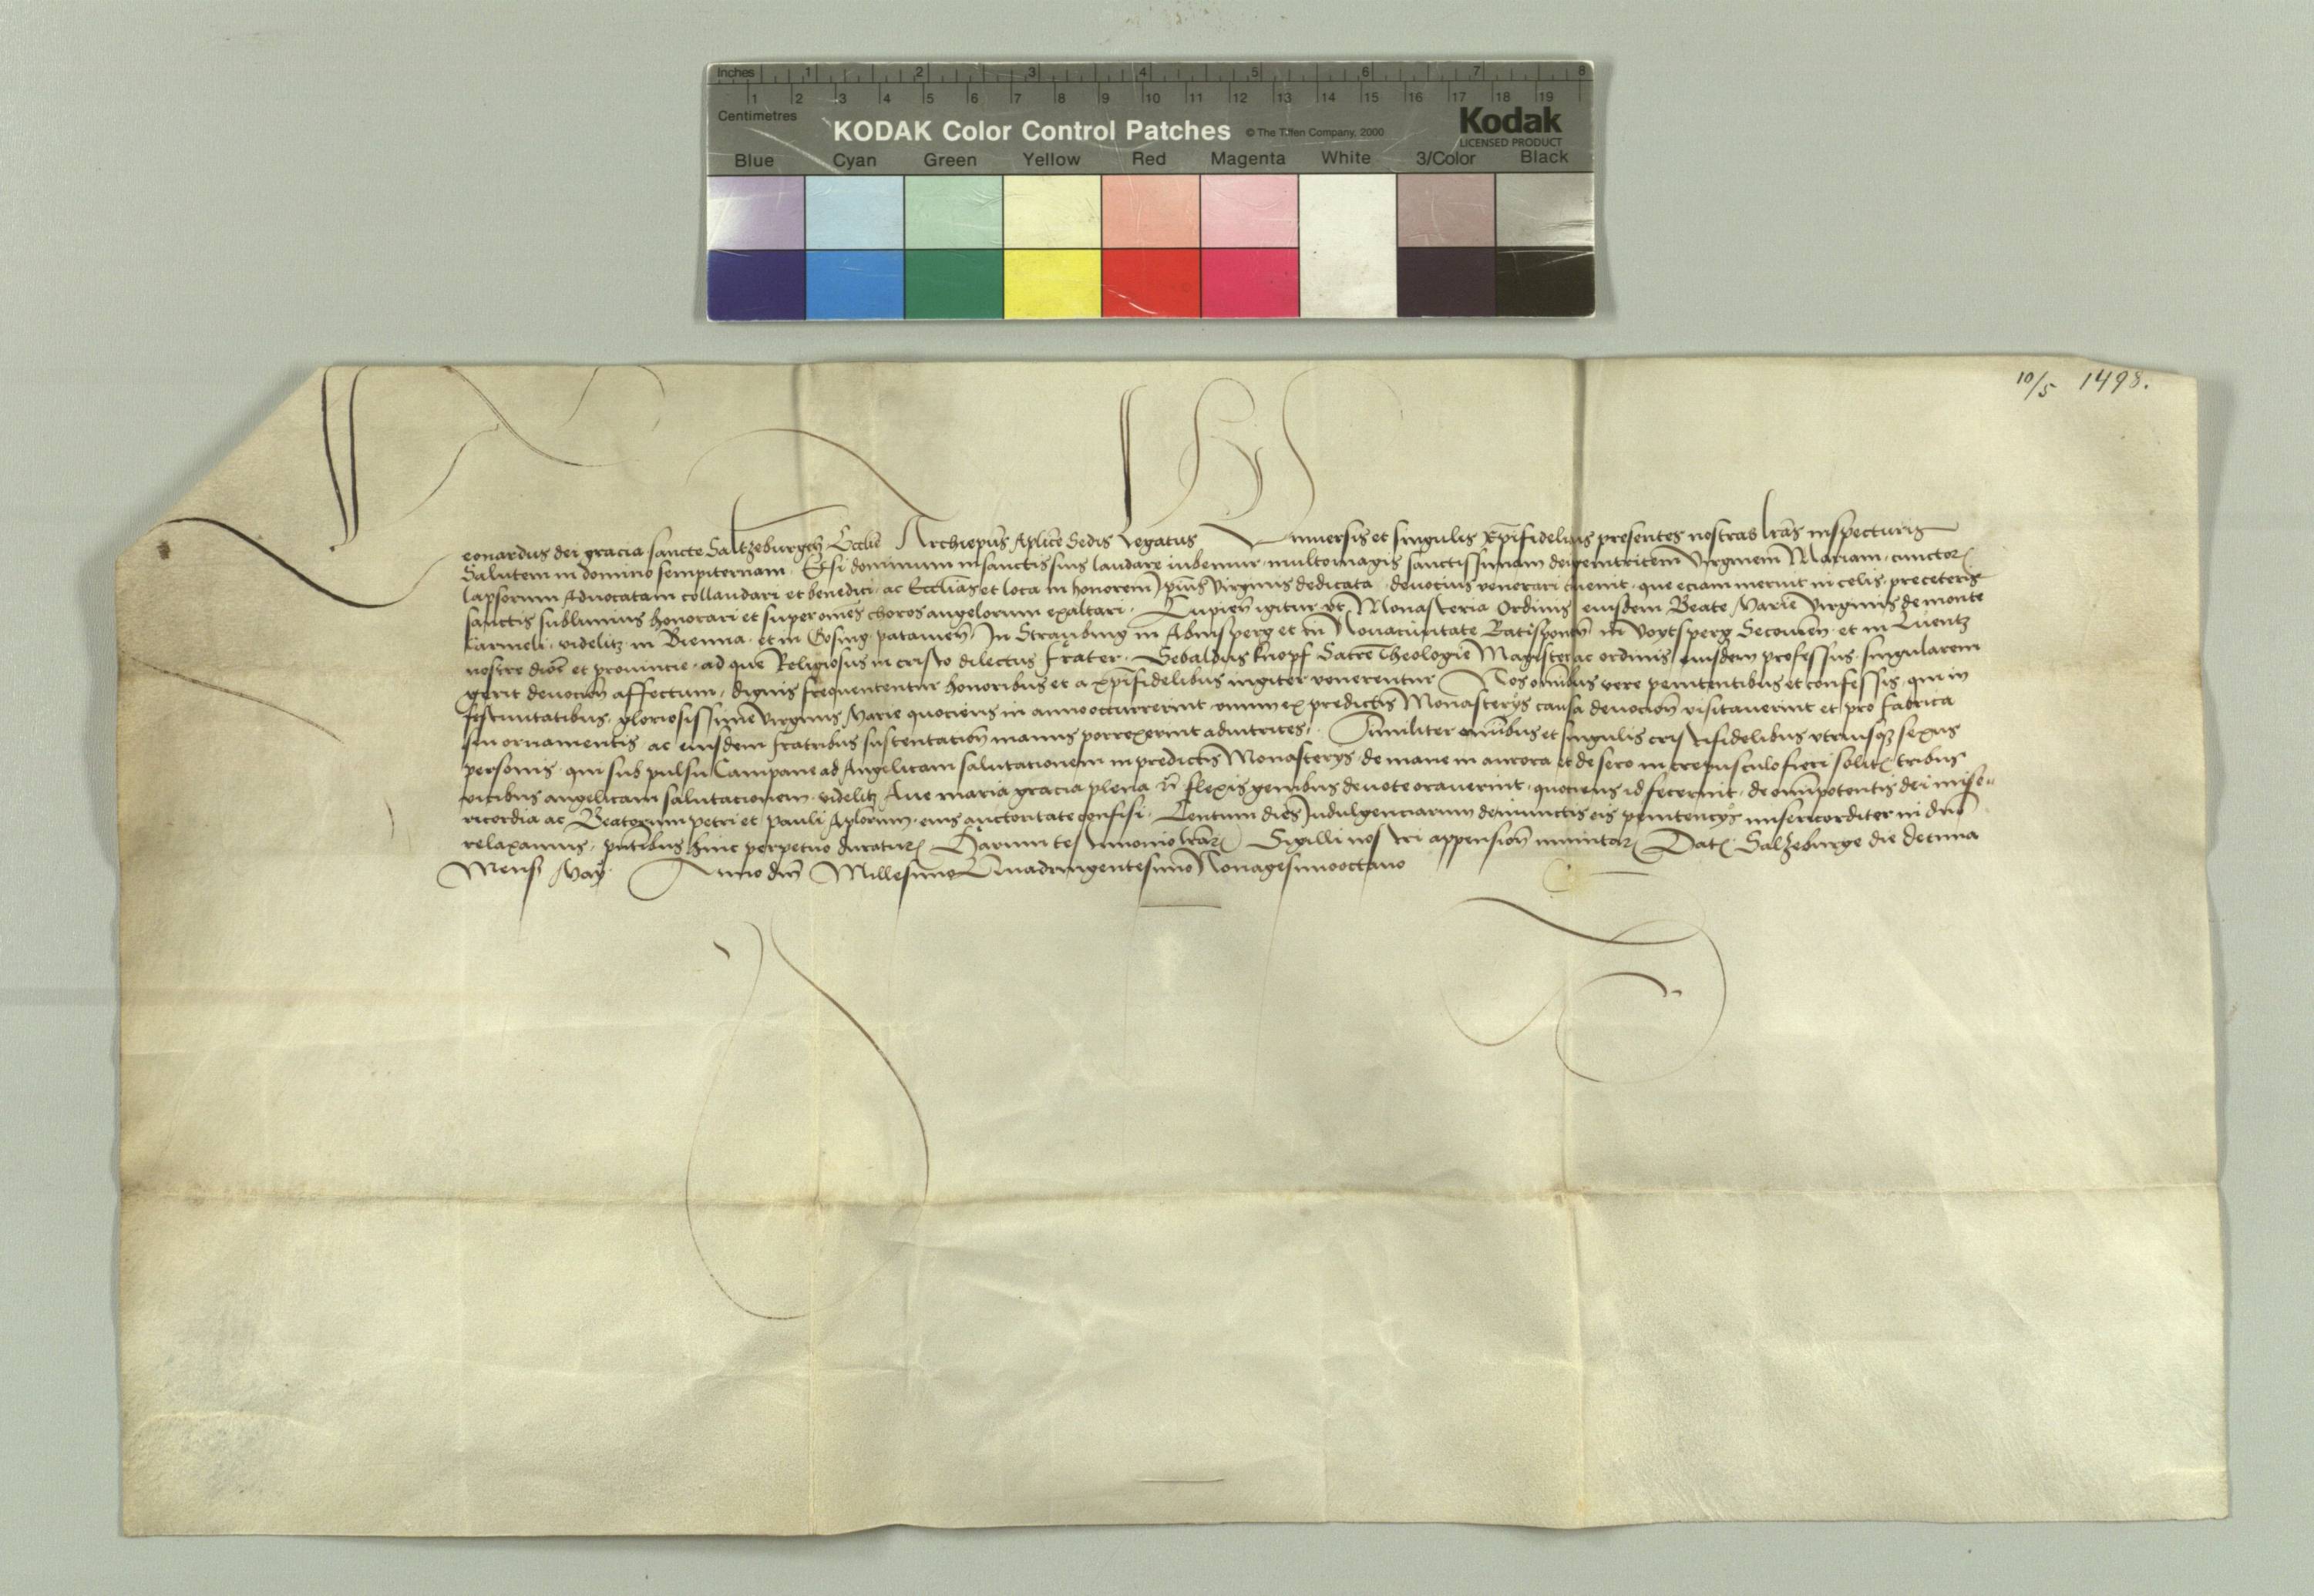 Inches 1 2 3 4 5 6 7 8
1 2 3 4 5 6 7 8 9 10 11 12 13 14 15 16 17 18 19
Centimetres
KODAK Color Control Patches © The Tiffen Company, 2000 Kodak
LICENSED PRODUCT
Blue Cyan Green Yellow Red Magenta White 3/Color Black
10/5 1498.
Leonardus dei gracia sancte Saltzeburgeñ Ecclie Archiepus Aplice Sedis Legatus Universis et singulis xpifidelibus presentes nostras lras inspecturis
Salutem in domino sempiternam. Etsi dominum in sanctis suis laudare iubemur, multomagis sanctissimam dei genitricem Virginem Mariam, cunctor
lapsorum Advocatam collaudari et benedici, ac Ecclias et loca in honorem Virginis dedicata, devocius venerari, que eciam meruit in celis, preceteris
sanctis sublimius honorari et super omnes choros angelorum exaltari. Cupien igitur vt Monasteria Ordinis eiusdem Beate Marie Virginis de monte
Carmeli, videlitz in Vienna, et in Gosing, patavien, In Straubing in Abensperg et in Ratisponen in Voytsperg Secovien, et in Luentz
nostre dioc et provincie, ad que Religiosus in cristo dilectus frater, Sebaldus knopf Sacre Theologie Magister ac ordinis eiusdem professus, singularem
gerit devocion affectum, dignis frequententur honoribus et a xpifidelibus iugiter venerentur Nos omibus vere penitentibus et confessis, qui in
festivitatibus, gloriosissime virginis Marie quociens in anno occurrerint, vnum ex predictis Monasterys causa devocion visitaverint et pro fabrica
seu ornamentis, ac eiusdem fratribus sustentacion manus porrexerint adiutrices, Similiter omibus et singulis cristifidelibus vtriusqz sexus
personis, qui sub pulsu Campane ad Angelicam salutacionem in predictis Monasterys, de mane in aurora et de sero in crepusculo fieri solit, tribus
vicibus angelicam salutacionem, videlitz Ave maria gracia plena flexis genibus devote oraverint, quociens id fecerint, de omipotentis dei mise-
ricordia ac Beatorum petri et pauli Aplorum, eius auctoritate confisi, Centum dies Indulgenciarum de iniunctis eis penitencys misericorditer in dno
relaxamus, pntibus hinc perpetuo duratur Harum testimonio lrar Sigilli nostri appension munitar Dat Saltzeburge die decima
Mensis May. Anno dni Millesimo Quadringentesimo Nonagesimooctavo